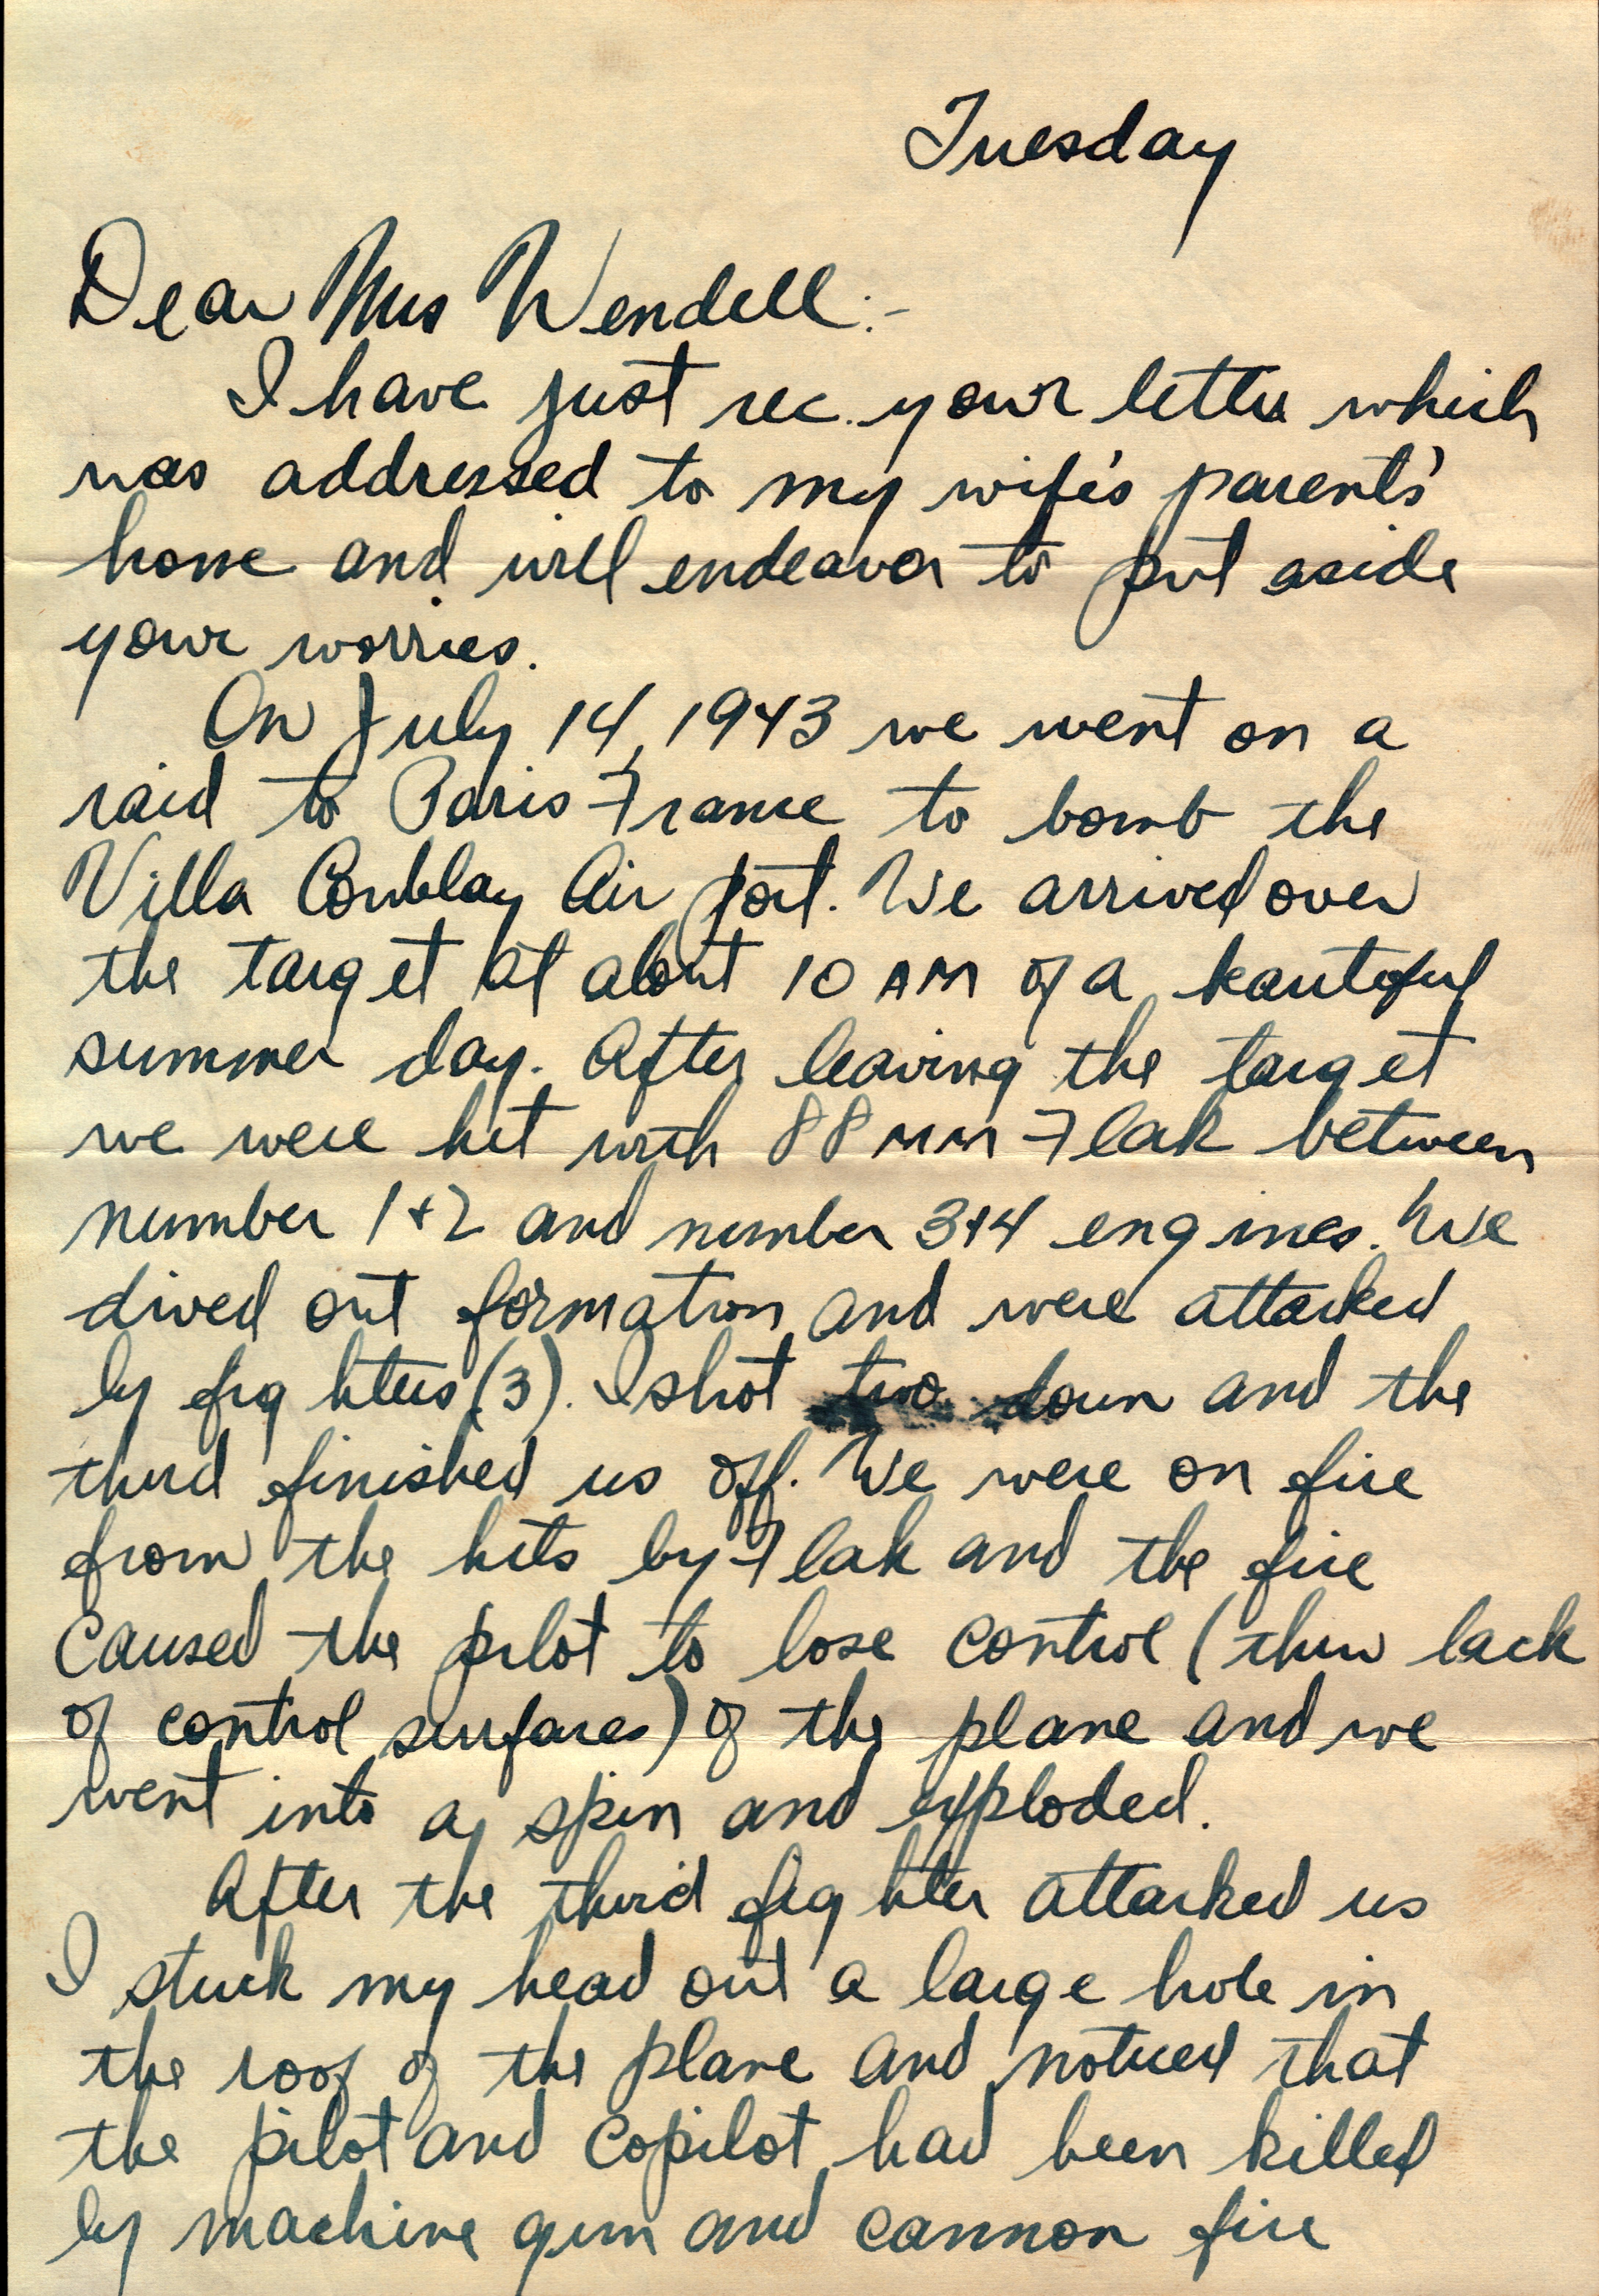 Tuesday
Dear Mrs Wendell:-
I have just rec. your letter which
was addressed to my wife's parents'
home and will endeavor to put aside
your worries.
On July 14, 1943 we went on a
raid to Paris France to bomb the
Villa Coublay Air port. We arrived over
the target at about 10 AM of a beautiful
summer day. After leaving the target
we were hit with 88 MM Flak between
number 1+2 and number 3+4 engines. We
dived out formation and were attacked
by fighters (3). I shot two down and the
third finished us off. We were on fire
from the hits by Flak and the fire
caused the pilot to lose control (thru lack
of control surfaces) of the plane and we
went into a spin and exploded.
After the third fighter attacked us
I stuck my head out a large hole in
the roof of the plane and noticed that
the pilot and copilot had been killed
by machine gun and cannon fire